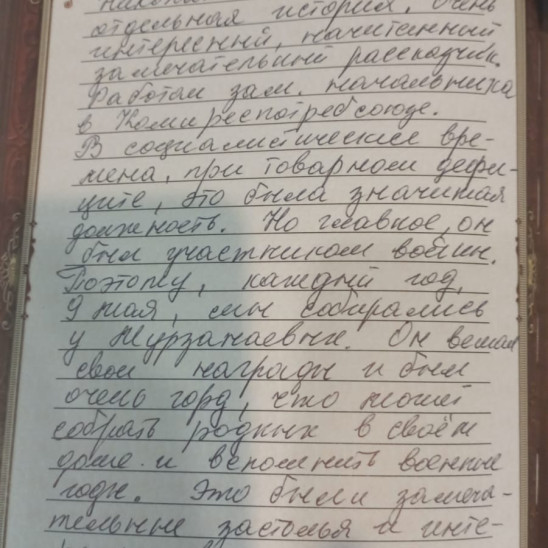 отдельная история. Очень
интересный, начитанный
замечательный рассказчик.
Работал зам. начальника
в Комиреспотребсоюзе.
В социалистические вре-
мена, при товарном дефи-
ците, это была значимая
должность. Но главное, он
был участником войны.
Поэтому, каждый год,
9 мая, мы собирались
у Мурзанаевых. Он вешал
свои награды и был
очень горд, что может
собрать родных в своём
доме и вспомнить военные
годы. Это были замеча-
тельные застолья и инте-